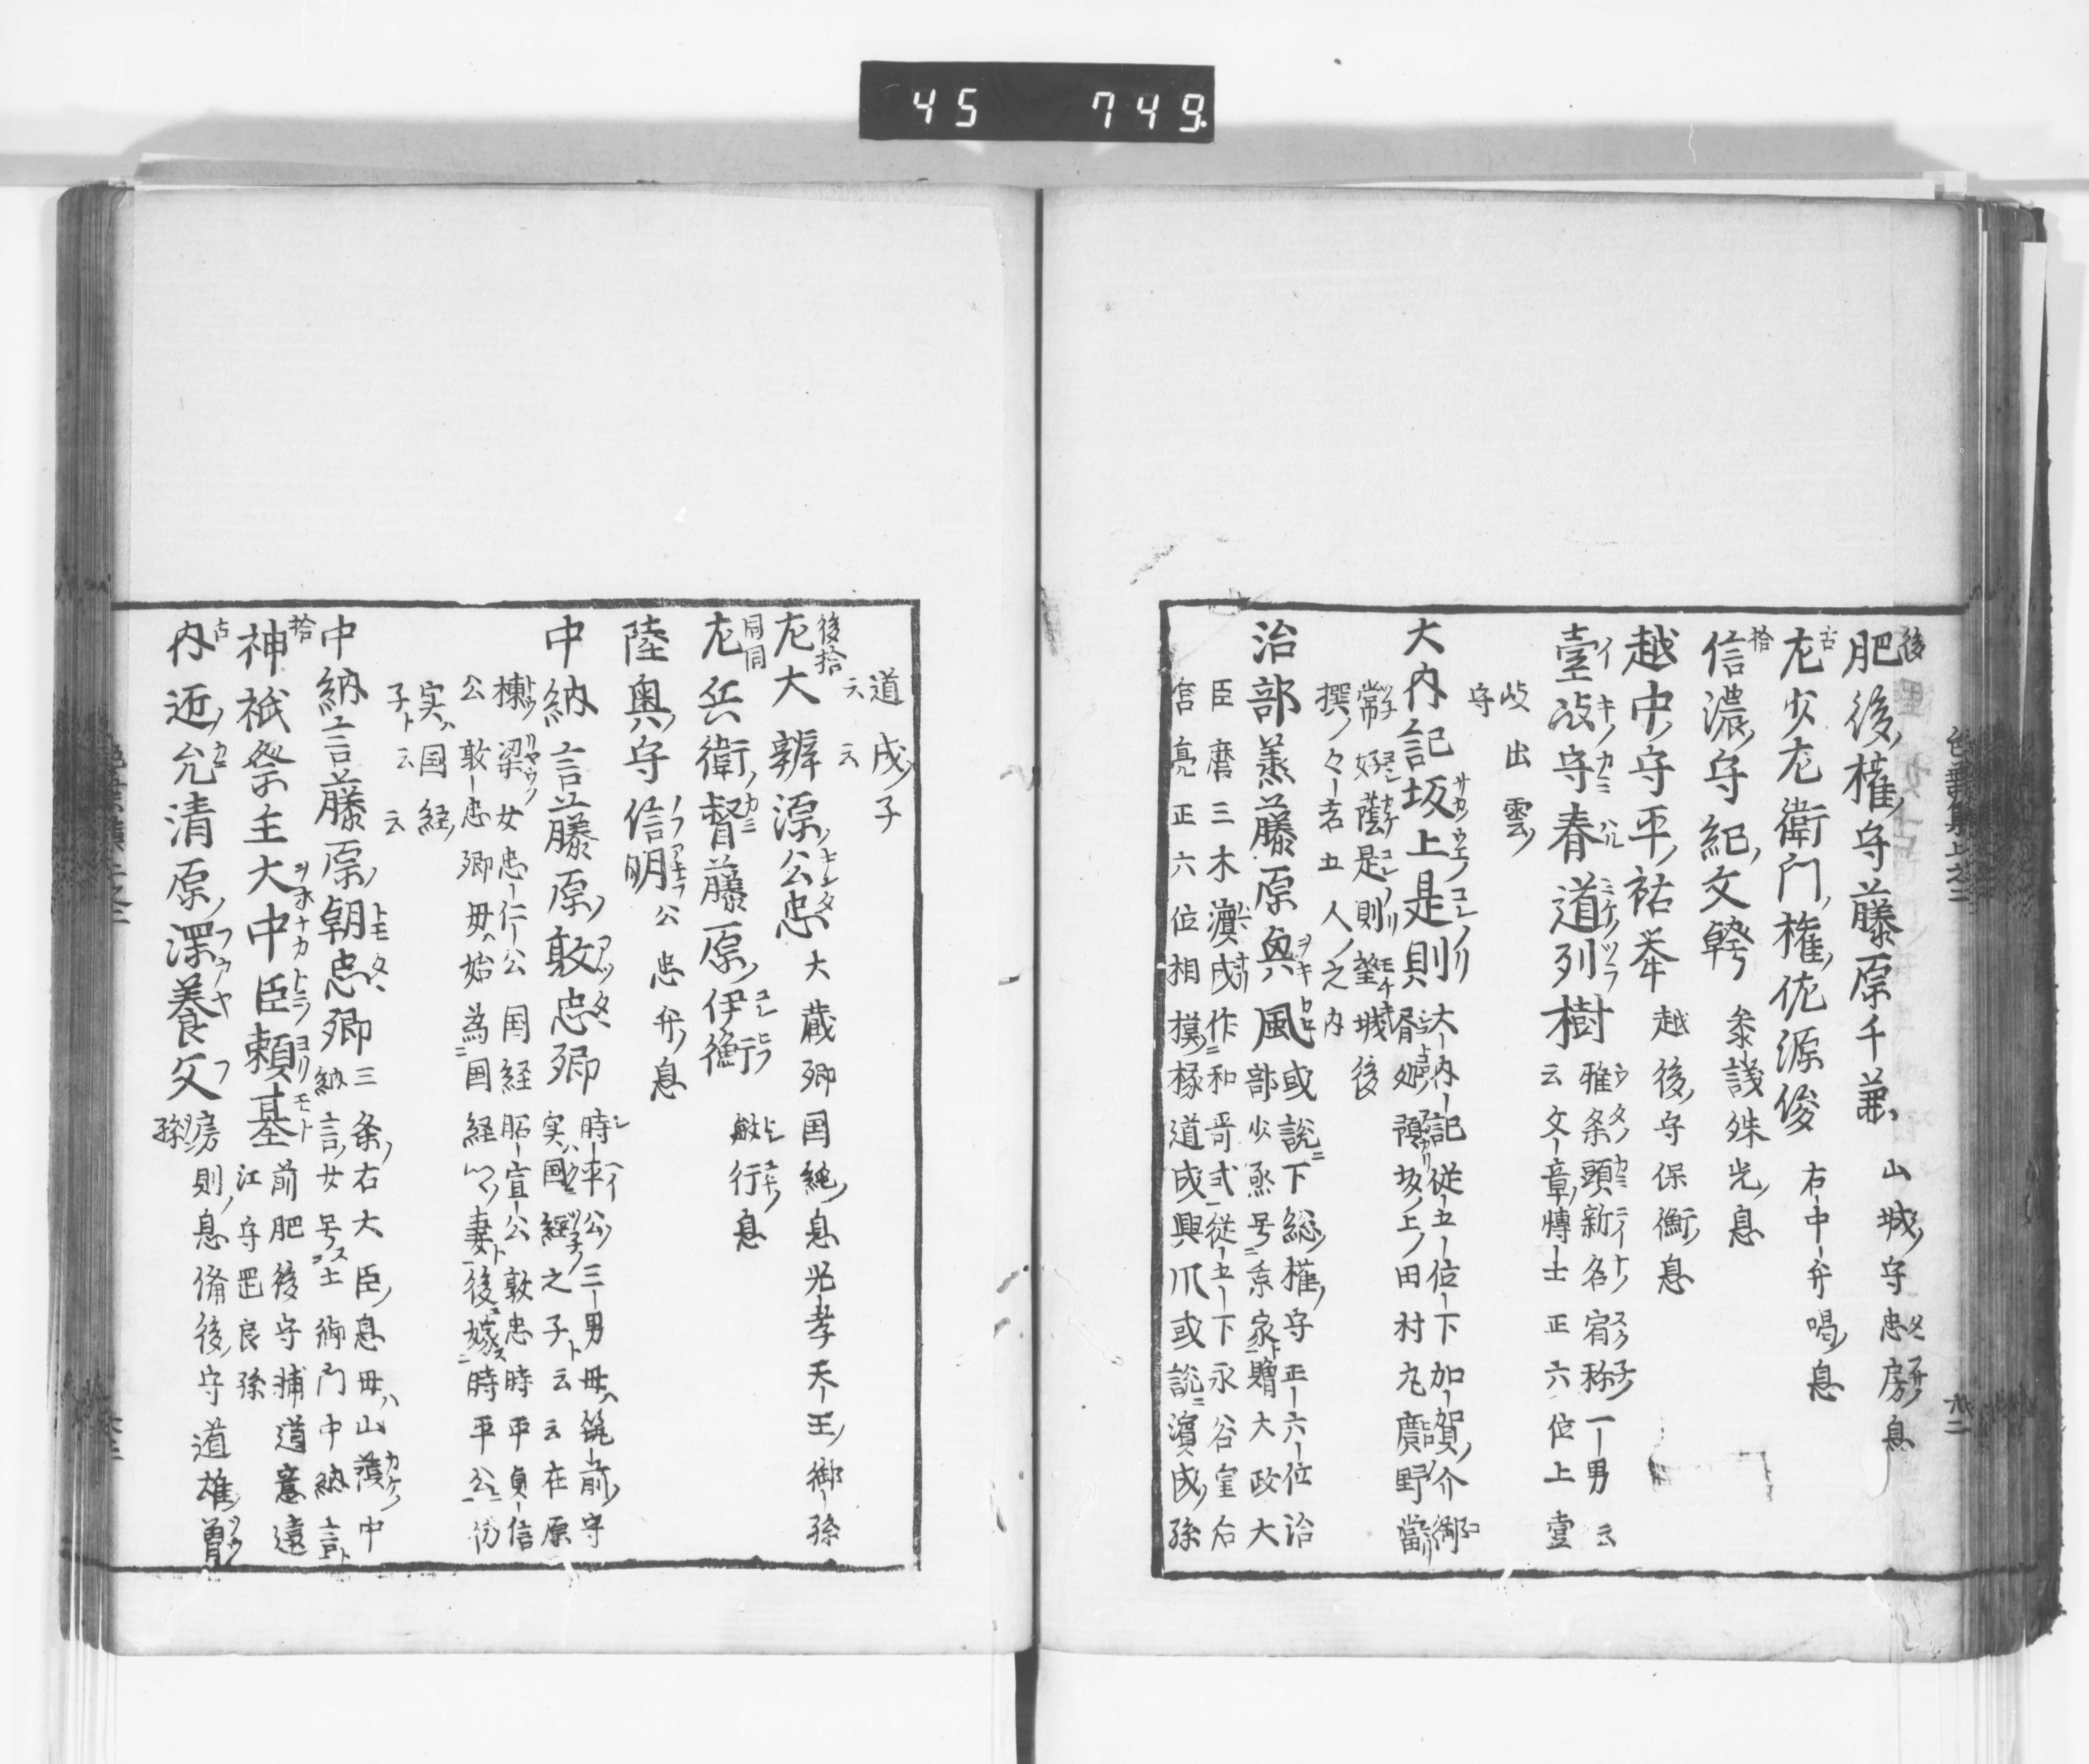 45 749
後
肥後權守藤原千兼 山城守忠房息
古
左少左衛門權佐源俊 右中弁唱息
拾
信濃守紀文幹 参議殊光息
越中守平祐挙 越後守保衡息
壹岐守春道列樹 雅朩頭新名宿祢一男云
云文章博士正六位上壹
岐出雲
守
大内記坂上是則 大内記従五位下加賀介御
書所預坂上田村丸廣野當
常好蔭是則望城後
撰々者五人之内
治部蒸藤原興風 或説下総權守正六位治
部少丞号系家贈大政大
臣麿三木濱成作和哥式従五下永谷室右
宮亮正六位相摸掾道成興爪或説濱成孫
道成子
云云
後拾
左大辨源公忠 大蔵卿国紀息光孝天王御孫
同同
左兵衛督藤原伊衡 敏行息
陸奥守信明 公忠弁息
中納言藤原敦忠卿 時平公三男母筑前守
実国經之子ト云云在原
棟梁女忠仁公国経昭宣公敦忠時平貞信
公敦忠卿母始為国経妻後嫁時平公仍
実国経
子ト云云
中納言藤原朝忠卿 三条右大臣息母山蔭中
納言女号土御門中納言
拾
神祇祭主大中臣頼基 前肥後守補道意遠
江守罡良孫
古
内近允清原深養父 房則息備後守道雄曽
孫